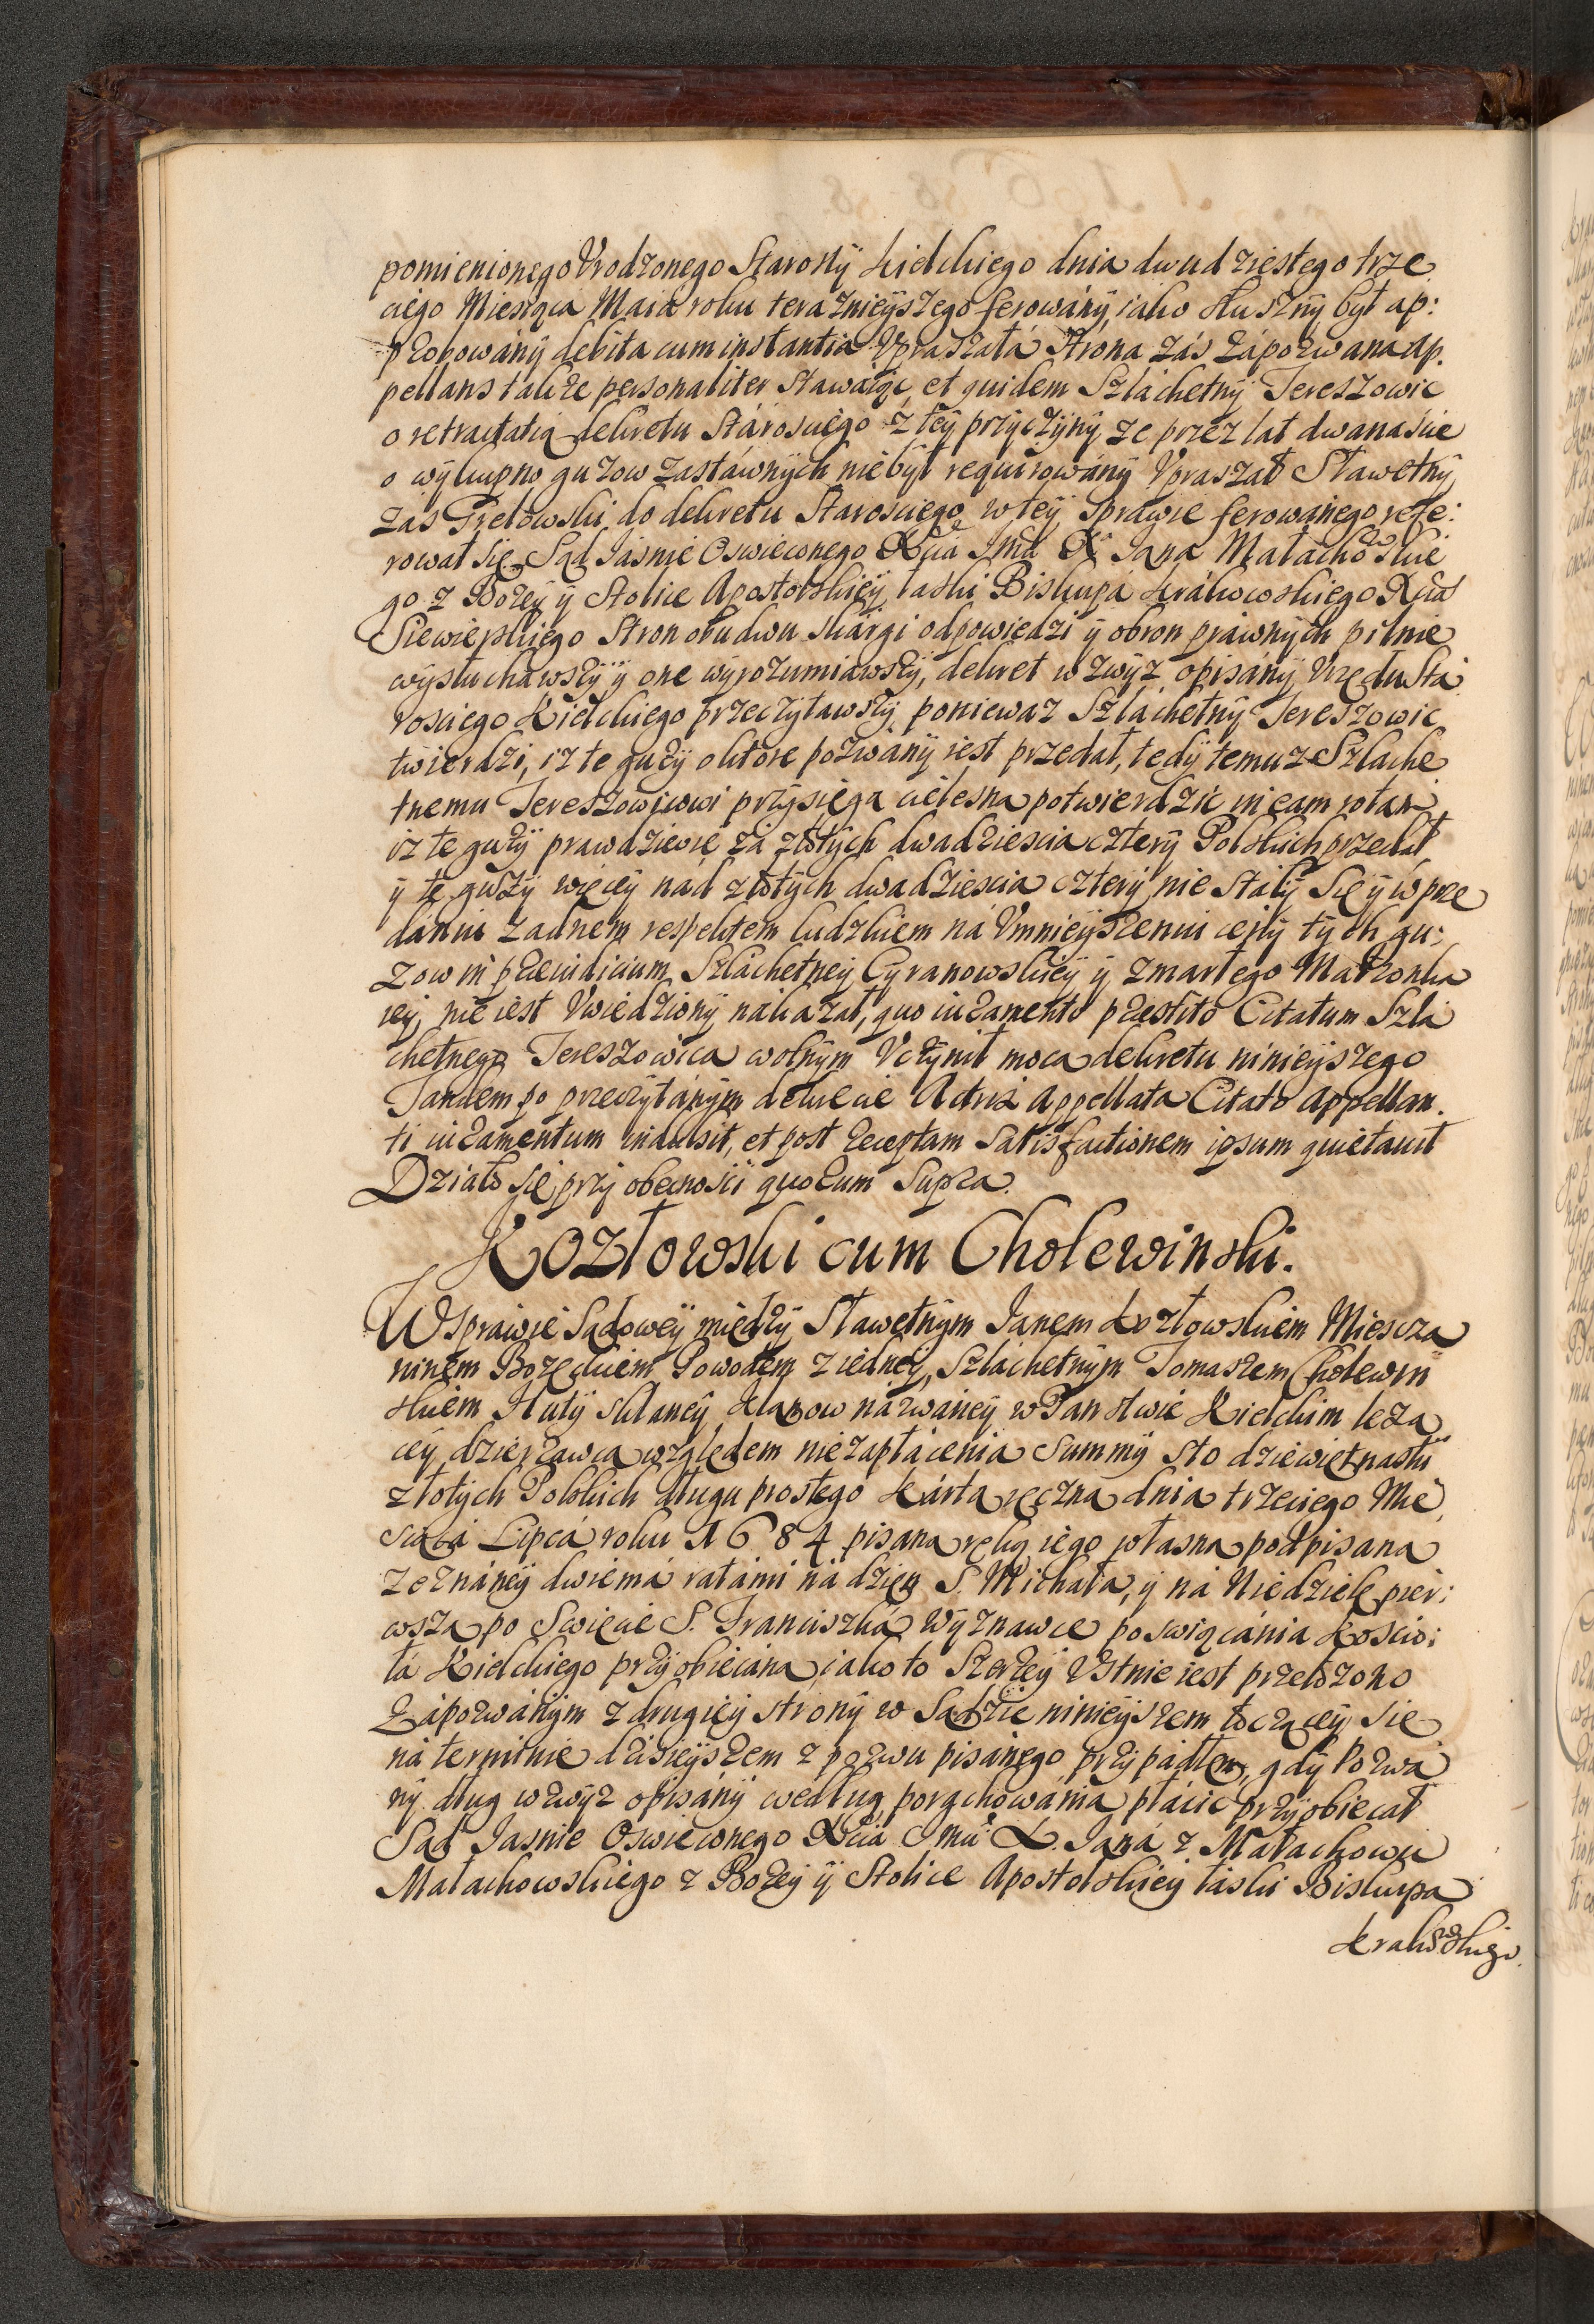 pomienionego Vrodzonego Starosty Kielckiego dnia dwudziestego trze
ciego Miesiąca Maia roku teraznieyszego ferowány, iako słuszny był ap:
probowány debita cum instantia Vpraszałá Strona zás zápozwana ap.
pellans także personaliter stawáiąc, et quidem Szláchetny Tereszowic
o retractatią dekretu Stárosciego z tey przyczyny, ze przez lat dwanascie
o wykupno guzow zastáwnych nie był requirowány Vpraszał Sławetny
zás Trelowski do dekretu Starosciego w tey sprawie ferowanego refe:
rował się. Sąd Jasnie Oswieconego Xcia Jmci X. Jana Małachowskie
go z Bożey y Stolice Apostolskiey łaski Biskupá Krákowskiego Xcia
Siewierskiego Stron obudwu skárgi odpowiedzi y obron práwnych pilnie
wysłucháwszy y one wyrozumiawszy, dekret w zwyz opisány Vrzędu Sta
rosciego Kielckiego przeczytawszy, poniewaz Szláchetny Tereszowic
twierdzi, iz te guzy o ktore pozwány iest przedał, tedy temuz Szlache
tnemu Tereszowicowi przysięgą cielesną potwierdzic in eam rotam
iz te guzy prawdziwie zá złotych dwadziescia cztery Polskich przedał
y te guzy więcy nad złotych dwadziescia cztery nie stały się y w prze
dániu zadnem respektem ludzkiem ná Vmnieyszeniu ceny tych gu:
zow in præiudicium Szláchetney Cyranowskiey y zmarłego Małzonka
iey, nie iest Vwiedziony nákazał, quo iuramento præstito Citatum Szla
chetnego Tereszowica wolnym Vczynił mocą dekretu ninieyszego
Tandem po przeczytánym dekrecie Actrix Appellata Citato Appellan.
ti iuramentum indulsit, et post receptam satisfactionem ipsum quietauit
Działo się przy obecnosci quorum supra.
Kozłowski cum Cholewinski.
W Sprawie Sądowey między Sławetnym Janem Kozłowskiem Miescza
ninem Bozęckiem Powodem z iedney, Szláchetnym Tomaszem Cholewin
skiem Huty sklaney názwáney w Panstwie Kielckim leżą
cey dzierżawcą względem niezapłácenia Summy sto dziewiętnastu
złotych Polskich długu prostego kártą ręczną dnia trzeciego Mie
siącá Lipcá roku 1684 pisaną ręką iego własną podpisaną
zeznáney dwiemá ratámi ná dzien S. Michałá, y ná Niedzielę pier:
wszą po Swięcie S. Franciszká Wyznawce poswiącánia Koscio:
łá Kielckiego przyobiecáną, iako to szerzey Vstnie iest przełozono
Zápozwánym z drugiey strony w Sądzie ninieyszem toczącey się
ná terminie dzisieyszem z pozwu pisánego przypádłem, gdy Pozwá
ny dług wzwyz opisány według porachowánia płácic przyobiecał
Sąd Jasnie Oswieconego Xcia Jmci X. Janá z Małachowá
Małachowskiego z Bożey y Stolice Apostolskiey łáski Biskupa
Krakowskiego.